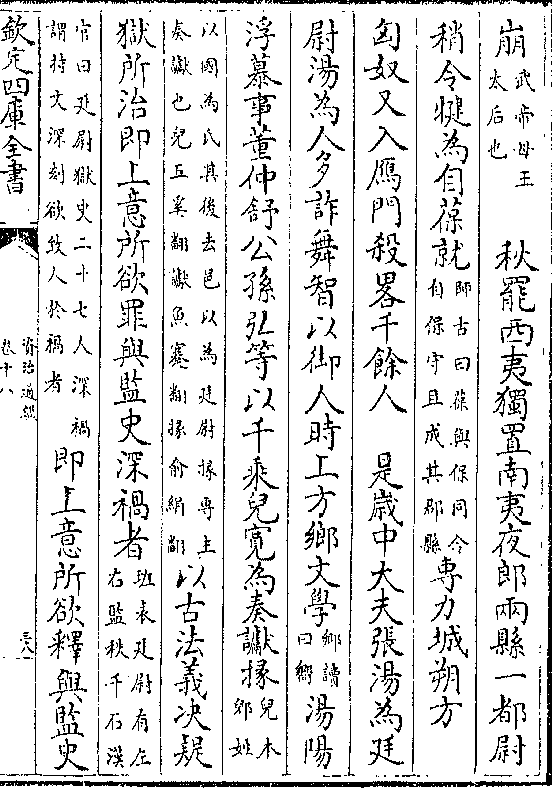 崩武帝母王太后也　秋罷西夷獨置南夷夜郎兩縣一都尉
稍令犍為自葆就師古曰葆與保同令自保守且成其郡縣專力城朔方
匈奴又入鴈門殺畧千餘人　是嵗中大夫張湯為廷
尉湯為人多詐舞智以御人時上方鄉文學鄉讀曰嚮湯陽
浮慕事董仲舒公孫弘等以千乘兒寛為奏讞掾兒本郳姓
以國為氏其後去邑以為廷尉掾專主奏讞也兒五奚翻讞魚蹇翻掾俞絹翻以古法義决疑
獄所治即上意所欲罪與監史深禍者班表廷尉有左右監秩千石漢
官曰廷尉獄史二十七人深禍謂持文深刻欲致人於禍者即上意所欲釋與監史
欽定四庫全書
資治通鑑
卷十八
三八